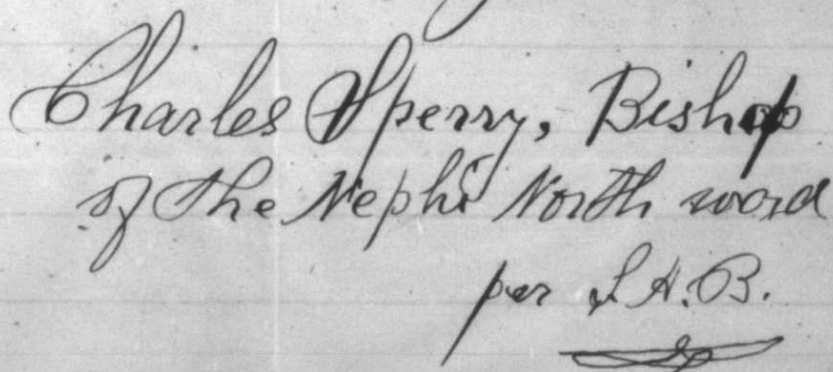 Charles Sperry, Bishop
of the Nephi North ward
per L.A.B.